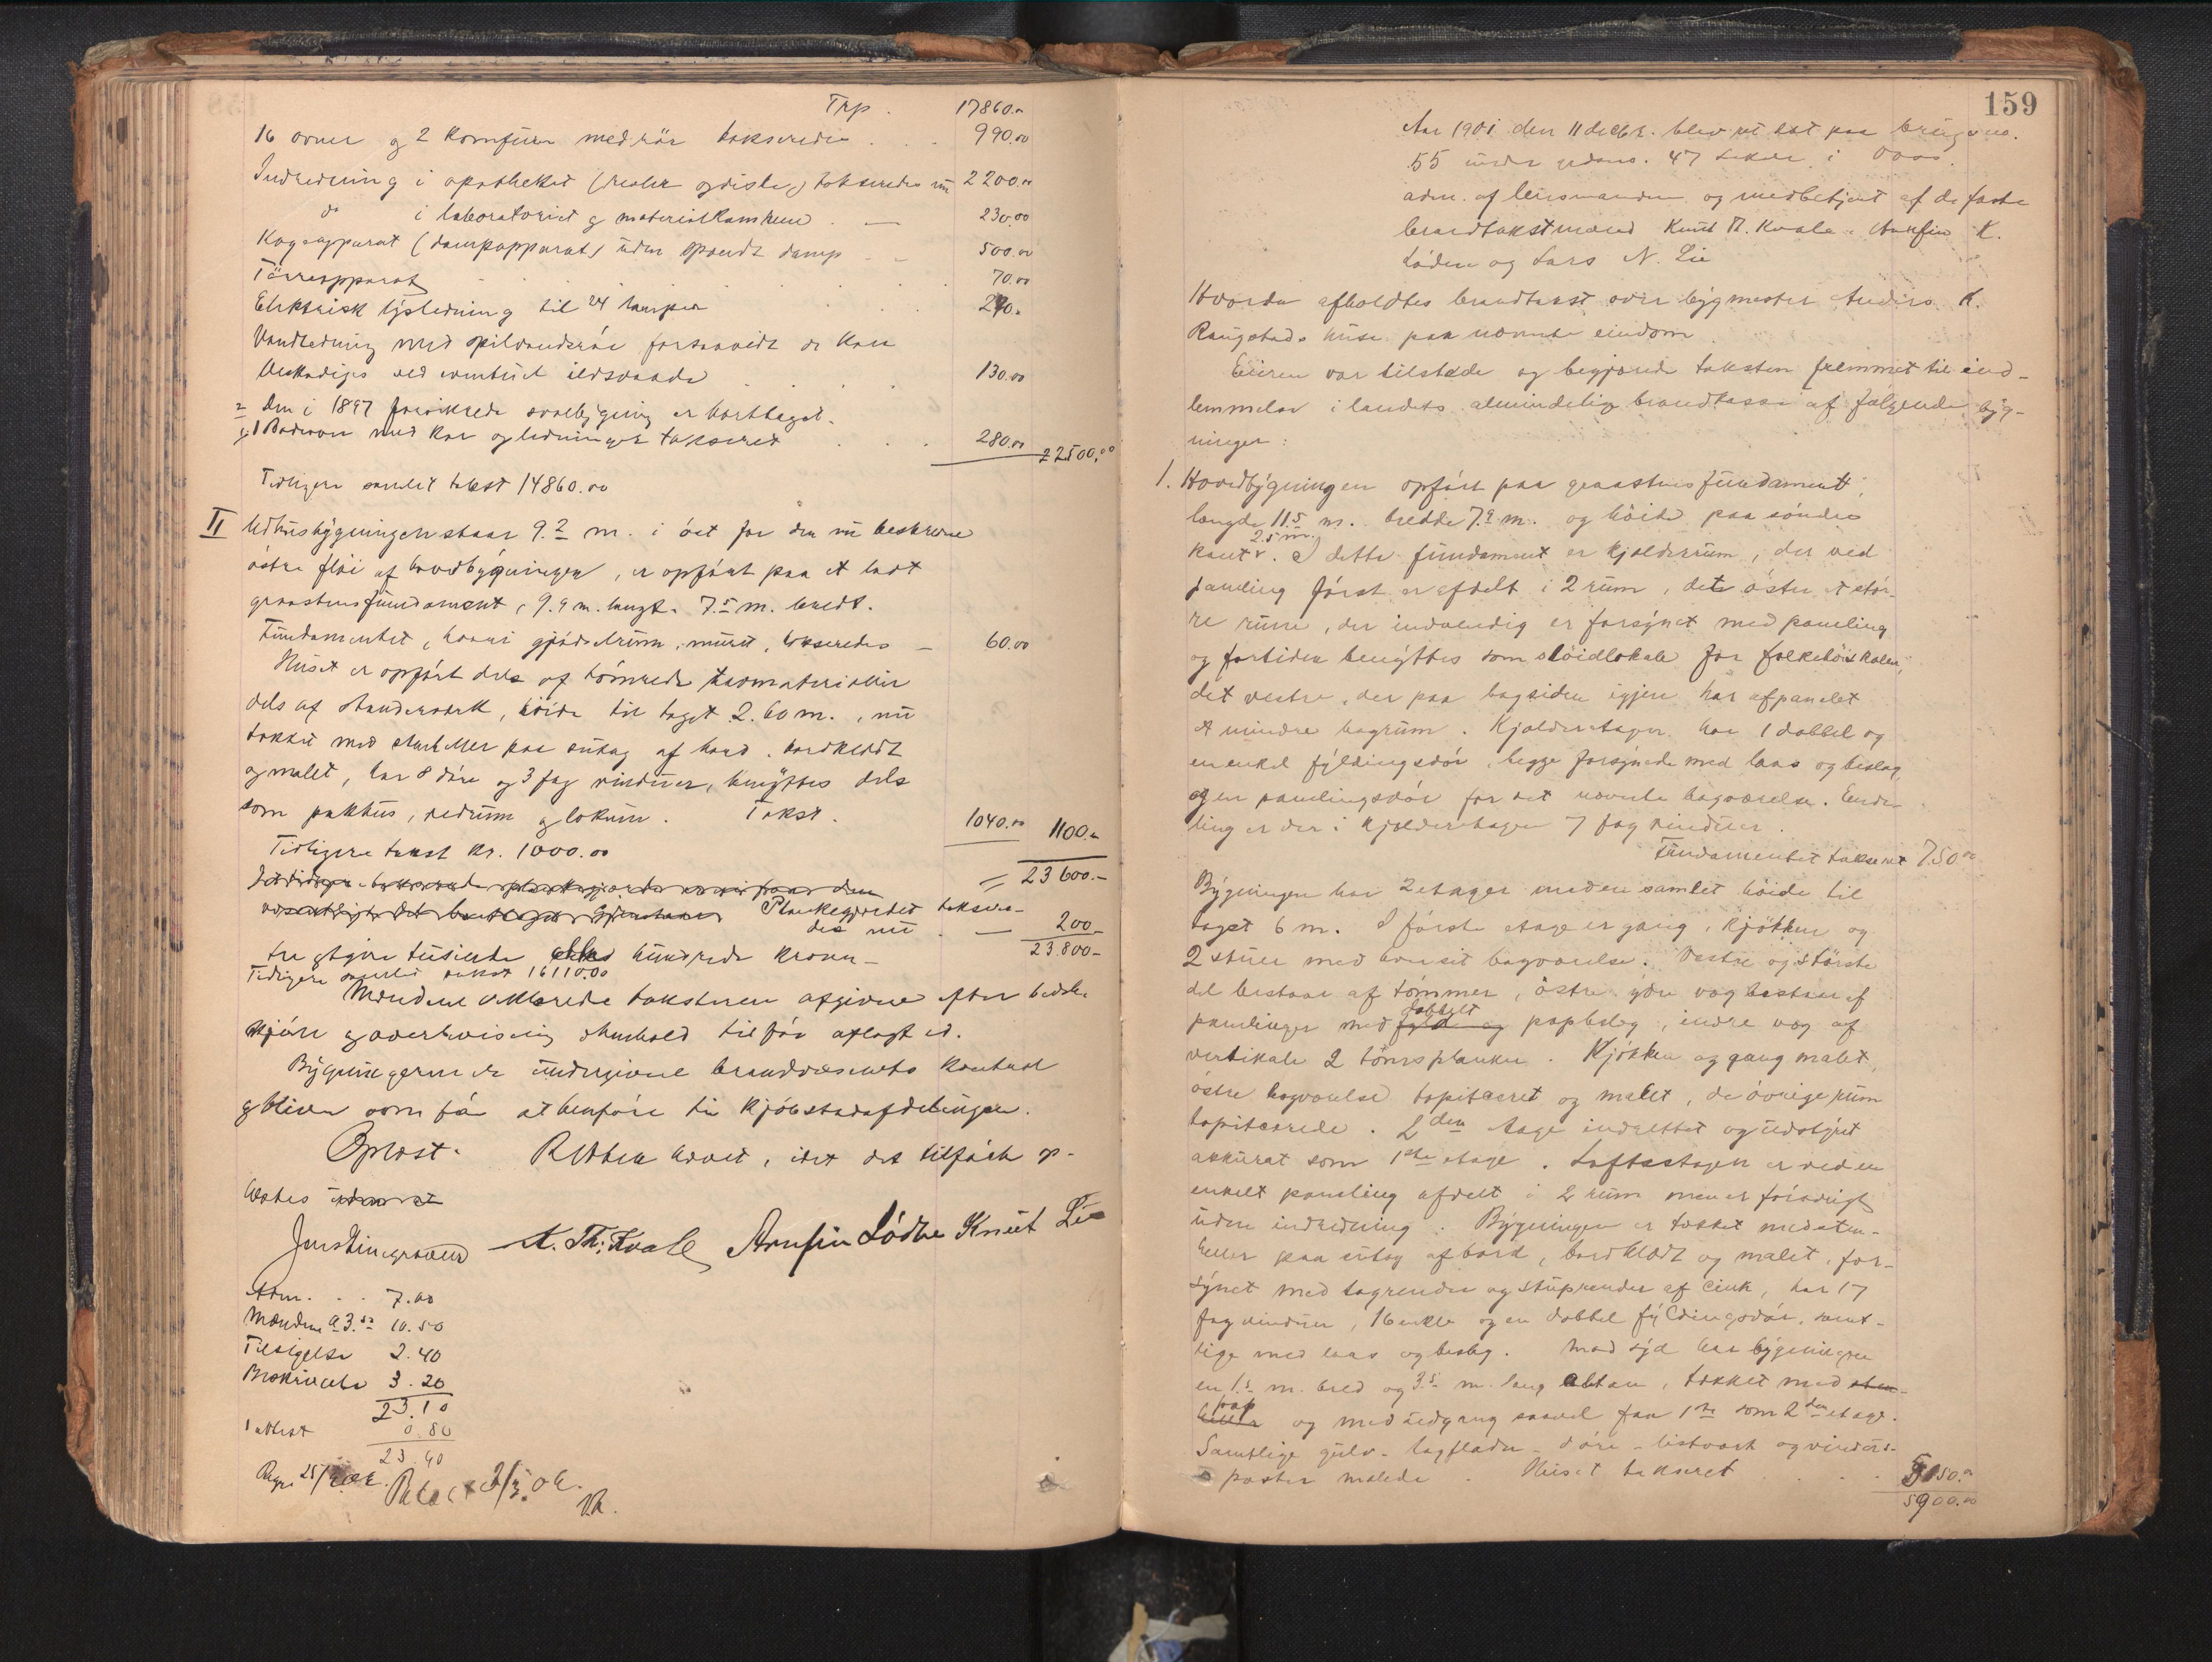 Trp. 17860.-
16 ovner og 2 komfurer med rör takseredes . . . 990.00
Indredning i apotheket (reoler og diske) takseredes nu 2200.00
do i laboratoriet og materialkamrene . — 230.00
Kogeapparat (dampapparat) uden spændt damp - - 500.00
Törreapparat . . . . . 70.00
Elektrisk lysledning til 24 lamper . . 240.-
Vandledning med spilvandsrör forsaavidt de kan
beskadiges ved eventuel ildsvaade . . . . 130.00
Den i 1897 forsikrede svalbygning er borttaget.
1 Badeovn med kar og ledninger takseret . . . 280.00 22500.00
Tidligere samlet takst 14860.00
II Udhusbygningen staar 9.2 m. i öst for den nu beskrevne
östre flöi af hovedbygningen, er opfört paa et lavt
graastensfundament, 9.9 m. langt. 7.5 m. bredt.
Fundamentet, hvori gjödselrum, muret, takseredes — 60.00
Huset er opfört dels af tömrede materialier
dels af stenderverk, höide til taget 2.60 m., nu
tækket med stenheller paa sutag af bord. bordklædt
og malet, har 8 döre og 3 fag vinduer, benyttes dels
som pakhus, vedrum og lokum. Takst. 1040.00 1100.-
Tidligere takst kr. 1000.00
= 23600.-
Plankegjærdet takseredes
nu — 200.-
23.800-
tre og tyve tusinde otte hundrede kroner —
Tidligere samlet takst 16110.00
Mændene erklærede taksterne afgivne efter bedste
skjön og overbevisning i henhold til för aflagt ed.
Bygningerne er undergivne brandvæsenets kontrol
og bliver som för at henföre til kjöbstadafdelingen.
Oplæst. Retten hævet, idet det tilförte op-
læstes
A. Th. Kvale Arnfin Lödve Knut Lie
Adm. . . 7.00
Mændene a 3.50 10.50
Tilsigelse 2.40
Beskrivelse 3.20
23.10
1 attest 0.80
23.40
159
Aar 1901 den 11 decbr. blev ret sat paa brugsno.
55 under gdsno. 47 i Voss.
adm. af lensmanden og medbetjent af de faste
brandtakstmænd Knut Th. Kvale, Arnfin K.
Lödve og Lars N. Lie
Hvorda afholdtes brandtakst over bygmester Anders K.
Rangstads huse paa nævnte eiendom.
Eieren var tilstede og begjærede taksten fremmet til ind-
lemmelse i landets almindelige brandkasse af fölgende byg-
ninger:
1. Hovedbygningen opfört paa graastensfundament,
længde 11.5 m. bredde 7.9 m. og höide paa söndre
kant 2.5 m. I dette fundament er kjælderrum, der ved
paneling först er afdelt i 2 rum, det östre et stör-
re rum, der indvendig er forsynet med paneling
og fortiden benyttes som slöidlokale for folkehöiskolen,
det vestre, der paa bagsiden igjen har afpanelet
et mindre bagrum. Kjælderetagen har 1 dobbel og
en enkel fyldingsdör, begge forsynede med laas og beslag,
og en panelingsdör for det nævnte bagværelse. Ende-
lig er der i kjælderetagen 7 fag vinduer.
Fundamentet takseret 750.00
Bygningen har 2 etager med en samlet höide til
taget 6 m. I förste etage er gang, kjökken og
2 stuer med hver sit bagværelse. Vestre og störste
del bestaar af tömmer, östre ydre væg bestaar af
panelinger med dobbelt papbelæg, indre væg af
vertikale 2 toms planker. Kjökken og gang malet,
östre bagværelse tapiseret og malet, de övrige rum
tapiserede. 2den etage indrettet og udstyret
akkurat som 1ste etage. Loftsetagen er ved en
enkelt paneling afdelt i 2 rum men er forövrigt
uden indredning. Bygningen er tækket med sten-
heller paa sutag af bord, bordklædt og malet, for-
synet med tagrender og stuprender af cink, har 17
fag vinduer, 16 enkle og en dobbel fyldingsdör, samt-
lige med laas og beslag. Mod syd har bygningen
en 1.5 m. bred og 3.5 m. lang altan, tækket med sten-
heller pap og med udgang saavel fra 1ste som 2den etage.
Samtlige gulv- tagflader- döre- listverk og vindus-
poster malede. Huset takseret . . . 5150.00
5900.00